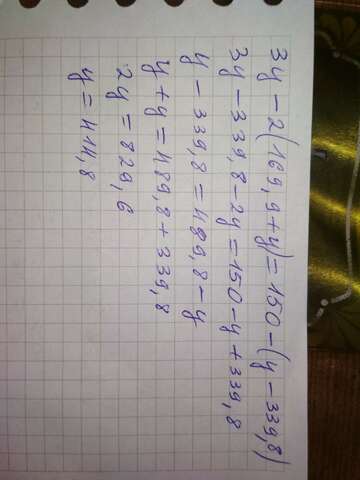 3y-2(169,9+y)=150-(y-339,8)
3y-339,8-2y=150-y+339,8
y-339,8=489,8-y
y+y=489,8+339,8
2y=829,6
y=414,8